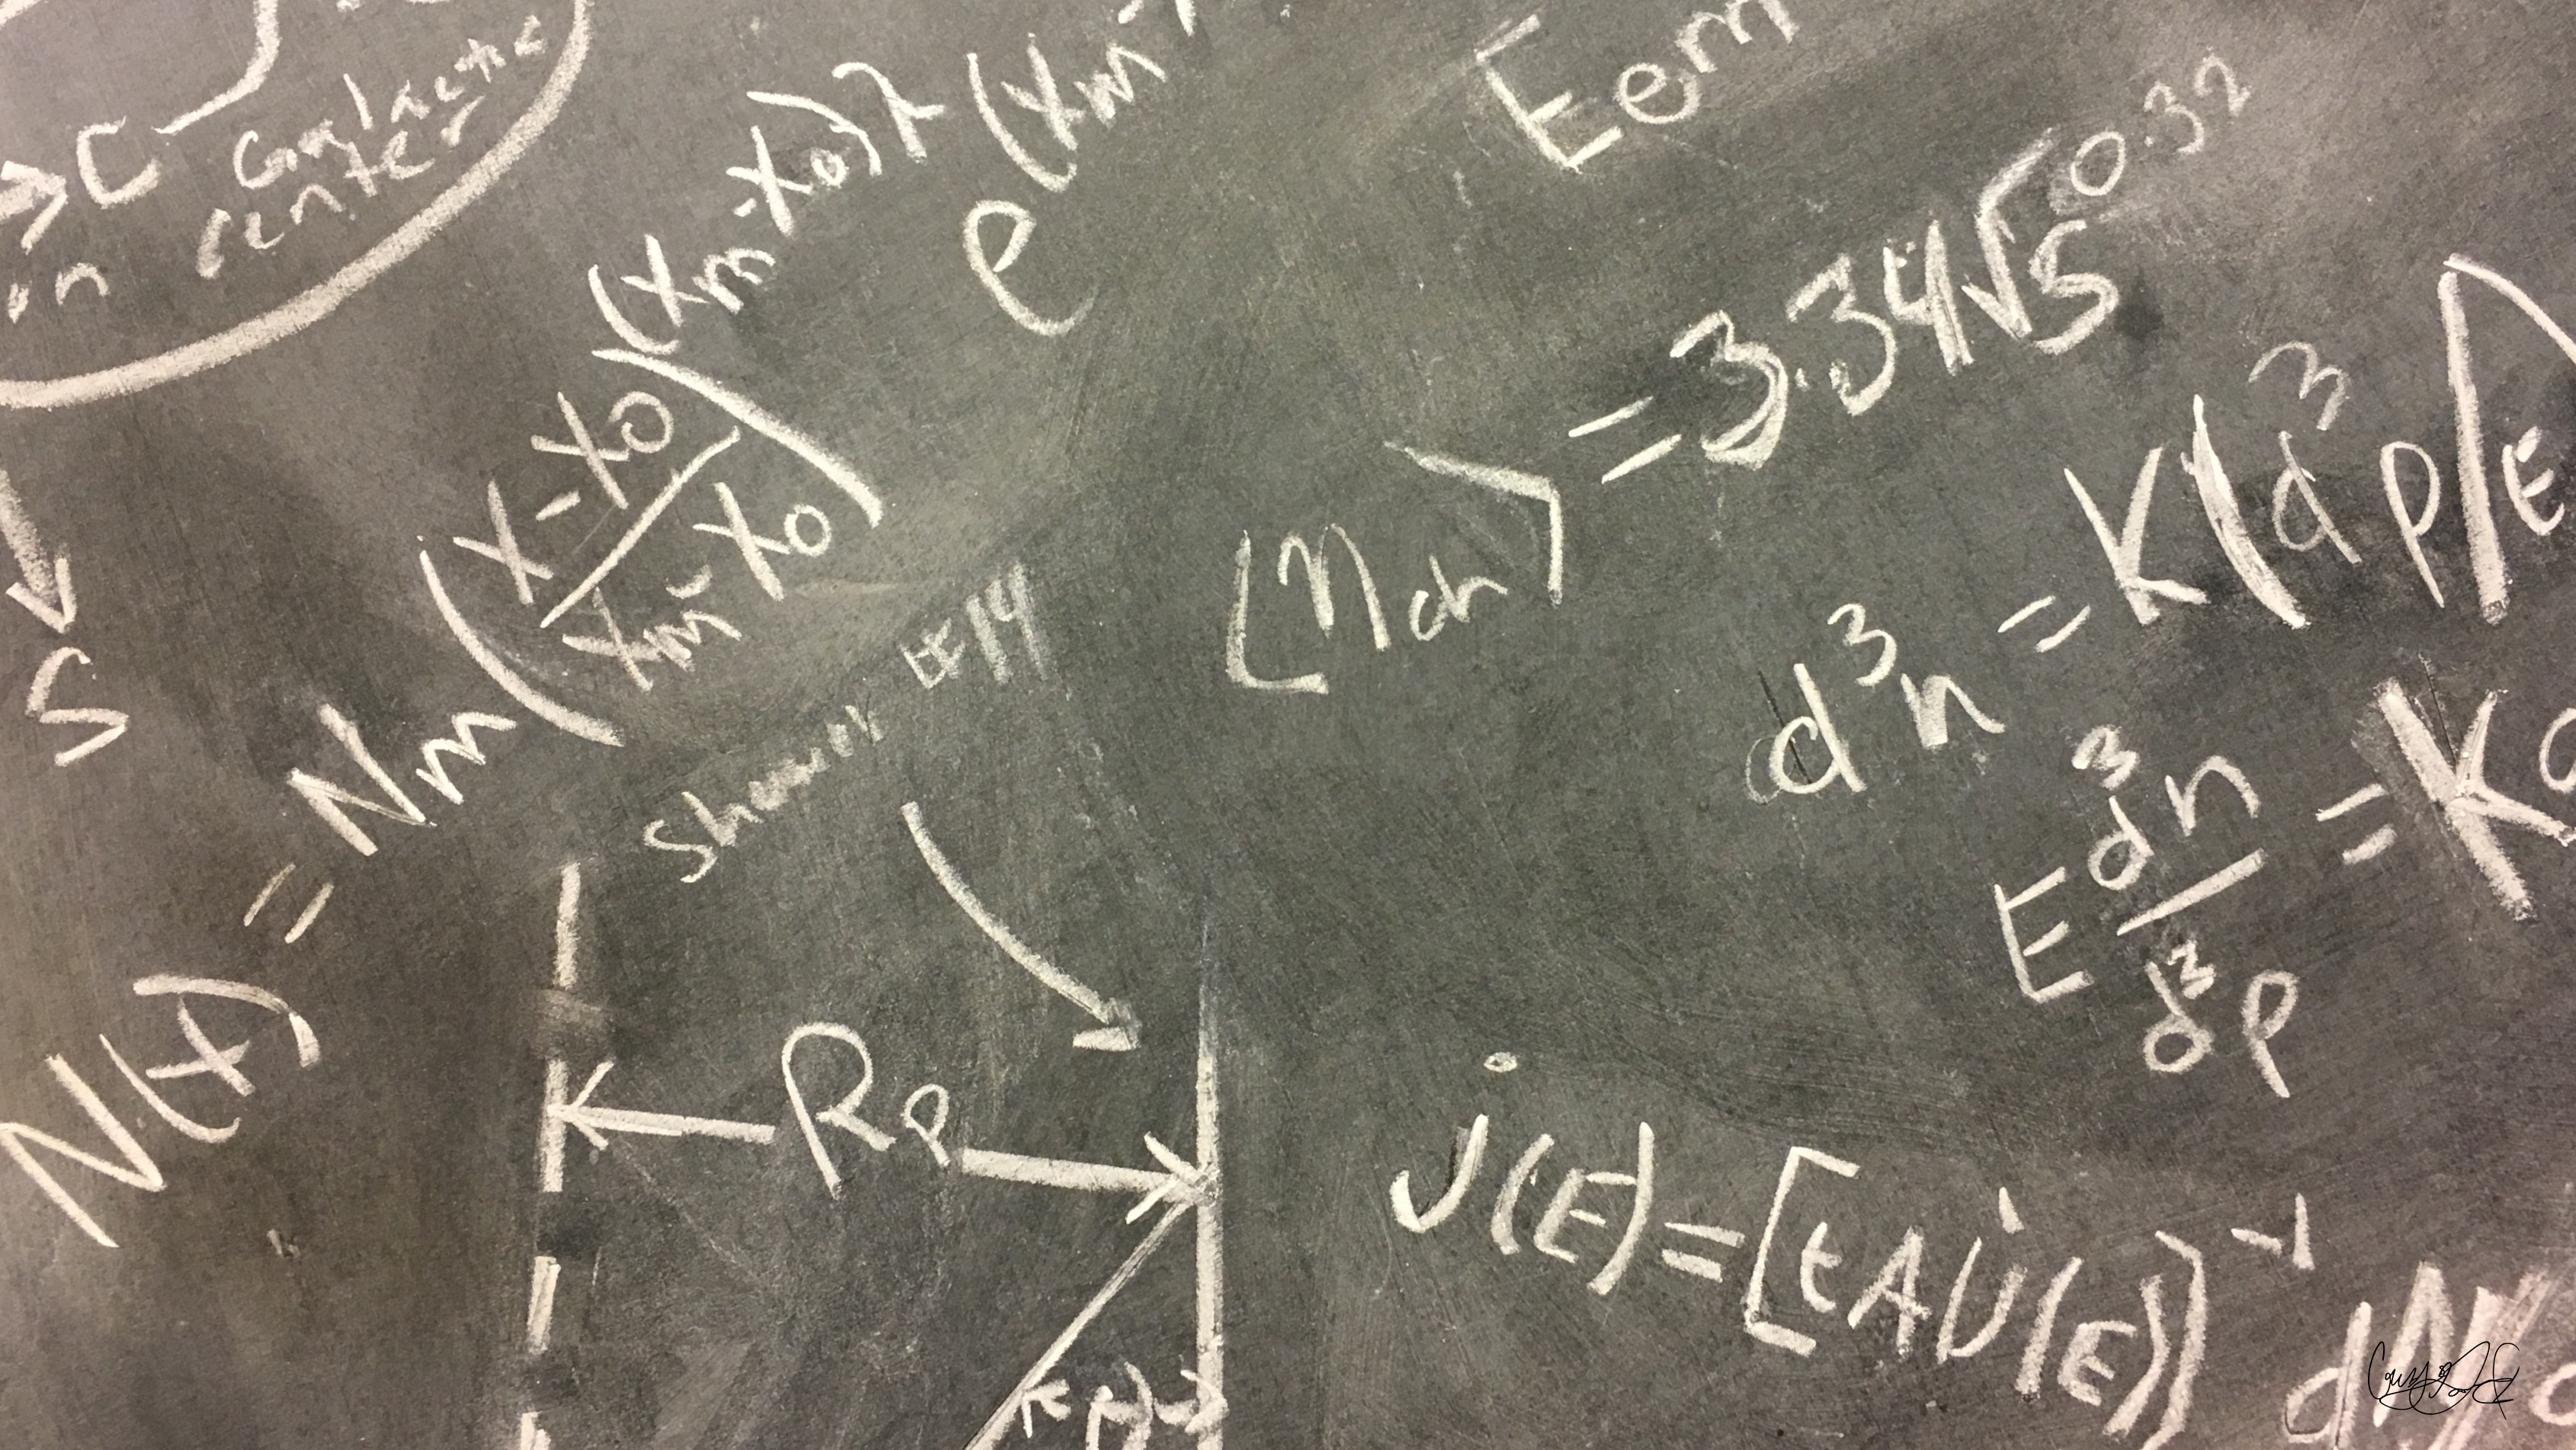 C
Galactic
center
in
S
N(x) = Nm((X-X0)/(Xm-X0))^((Xm-X0)λ) e^((Xm-
Eem
⟨nch⟩ = 3.34√5^0.32
d³n = K(d³p/E
E d³n/d³p = K
Shower #14
Rp
j(E) = [tAU(E)]⁻¹ dN/d